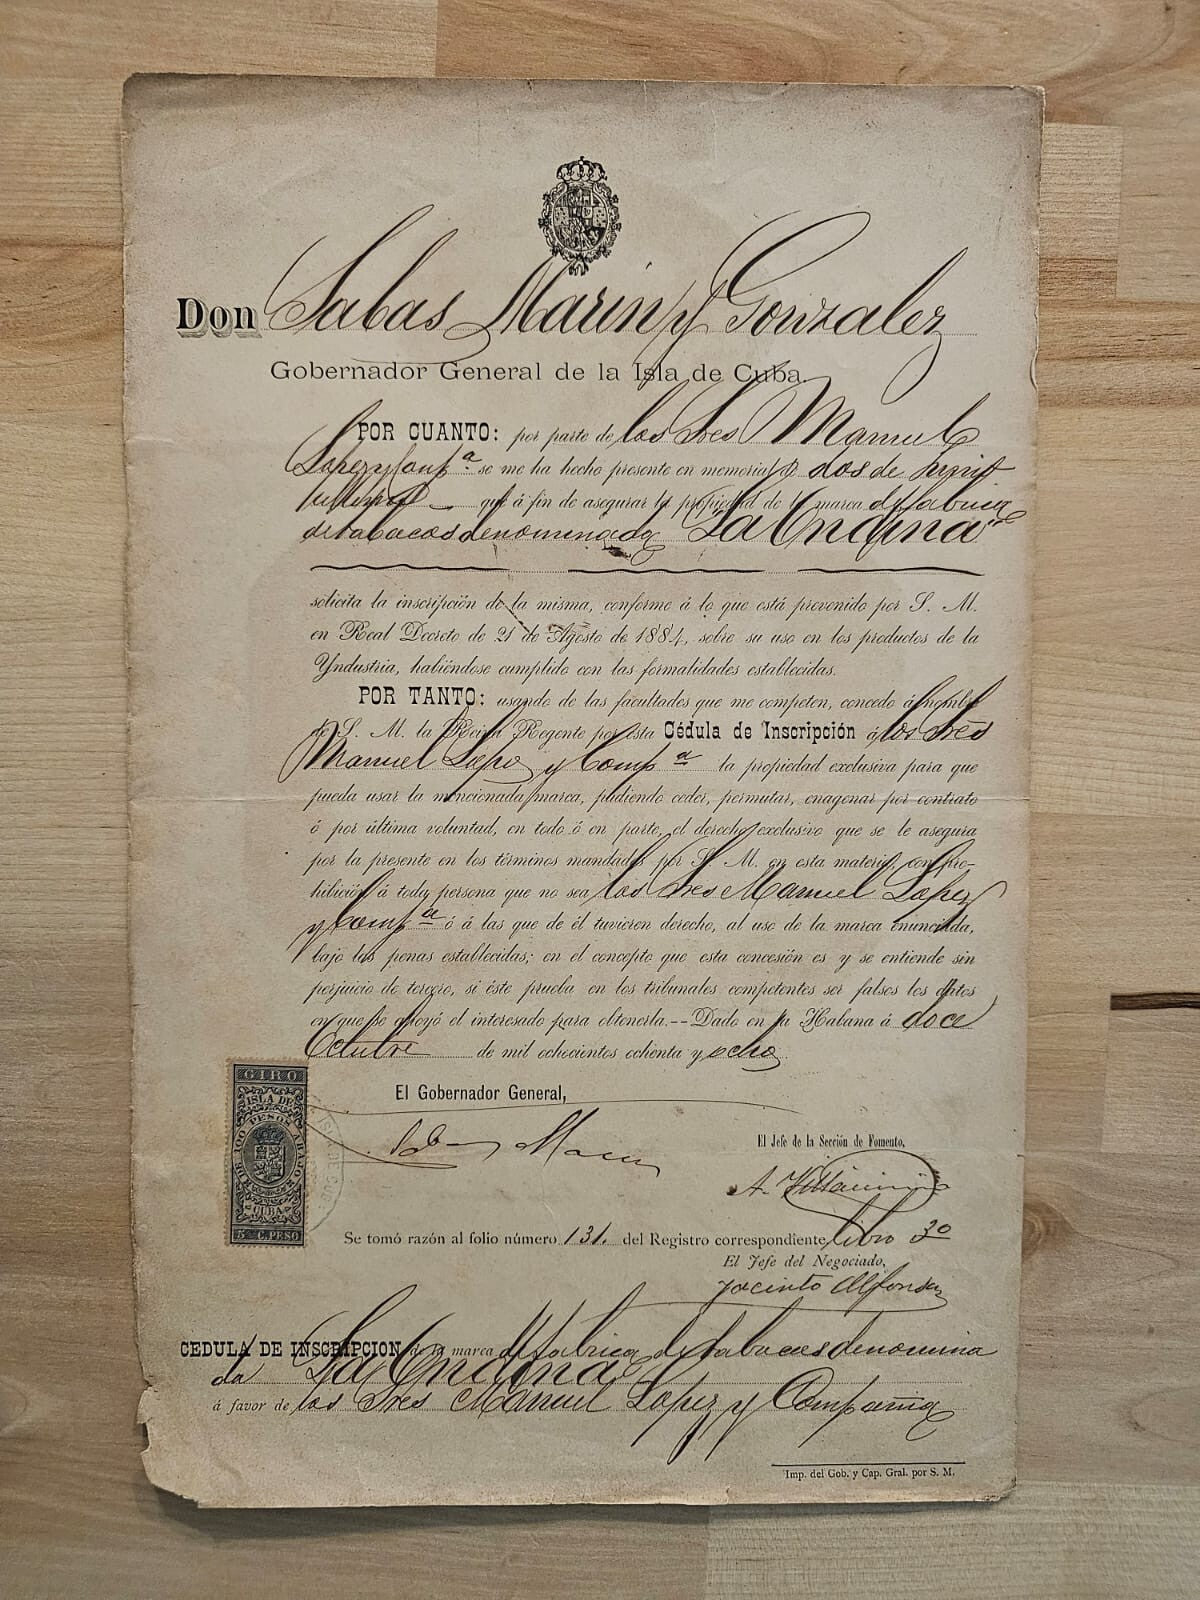 Don Sabas Marin y Gonzalez
Gobernador General de la Isla de Cuba.
POR CUANTO: por parte de los Sres Manuel
Lopez y Compª se me ha hecho presente en memorial dos de
que á fin de asegurar la propiedad de la marca de fabrica
de tabacos denominada "La Ondina"
solicita la inscripción de la misma, conforme á lo que está prevenido por S. M.
en Real Decreto de 21 de Agosto de 1884, sobre su uso en los productos de la
Yndustria, habiéndose cumplido con las formalidades establecidas.
POR TANTO: usando de las facultades que me competen, concedo á nombre
de S. M. la Reina Regente por esta Cédula de Inscripción á los Sres
Manuel Lopez y Compª la propiedad exclusiva para que
pueda usar la mencionada marca, pudiendo ceder, permutar, enagenar por contrato
ó por última voluntad, en todo ó en parte, el derecho exclusivo que se le asegura
por la presente en los términos mandados por S. M. en esta materia, con pro-
hibición á toda persona que no sea los Sres Manuel Lopez
y Compª ó á las que de él tuvieren derecho, al uso de la marca enunciada,
bajo las penas establecidas; en el concepto que esta concesión es y se entiende sin
perjuicio de tercero, si éste prueba en los tribunales competentes ser falsos los datos
en que se apoyó el interesado para obtenerla.--Dado en la Habana á doce
Octubre de mil ochocientos ochenta y ocho
El Gobernador General,
Sabas Marin
El Jefe de la Sección de Fomento,
GIRO
ISLA DE
SUS 100 PESOS ABAJO
CUBA
5 C. PESO
Se tomó razón al folio número 131. del Registro correspondiente libro 3º
El Jefe del Negociado,
Jacinto Alfonso
CEDULA DE INSCRIPCION de la marca de fabrica de tabacos denomina
da La Ondina
á favor de los Sres Manuel Lopez y Compañia
Imp. del Gob. y Cap. Gral. por S. M.